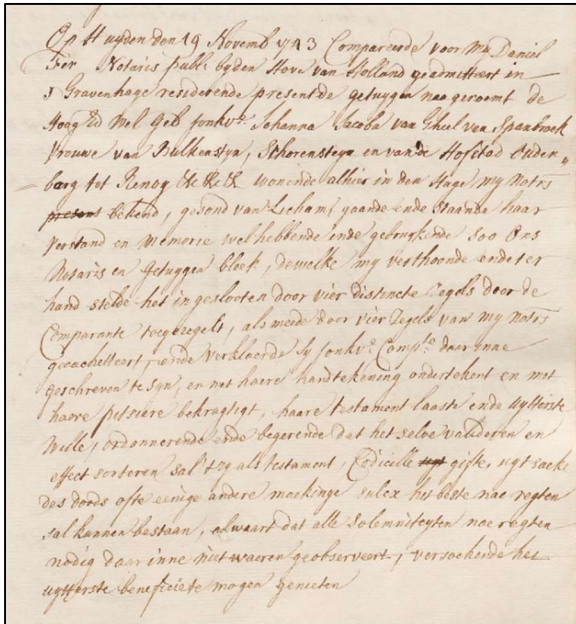 Op Huyden den 19 Novemb 1723 Compareerde voor My Daniel
Fer Notaris publ: byden Hove van Holland geadmitteert in
s Gravenhage residerende present de getuygen nae genoemt de
Hoog Ed Wel Geb Jonkvr: Johanna Jacoba van Gheel van Spanbroek
Vrouwe van Bulkensteyn, Schorensteyn en van de Hofstad Ouden„
barg tot Renoy &c &c &c wonende alhier in den Hage, my Notrs
present bekend, gesond van Lichaam, gaande ende staande haar
verstand en memorie wel hebbende ende gebruykende soo Ons
Notaris en getuygen bleek, dewelke my verthoonde ende ter
hand stelde het ingeslooten door vier distincte Zegels door de
Comparante toegezegelt, als mede door vier Zegels van my Notrs
gecachetteert, ende verklaerde sy Jonkvr: Compte daer inne
geschreven te syn, en met haere handtekening ondertekent en met
haere pitsiere bekragtigt, haare testament laaste ende uytterste
Wille, ordonnerende ende begerende dat het selve valideren en
effect sorteren sal 't zy als testament, Codicille uyt gifte, uyt saeke
des doods ofte eenige andere maekinge sulcx het beste nae regten
sal kunnen bestaan, alwaart dat alle Solemniteyten nae regten
nodig daar inne niet waeren geobserveert, versoekende het
uytterste beneficie te mogen genieten